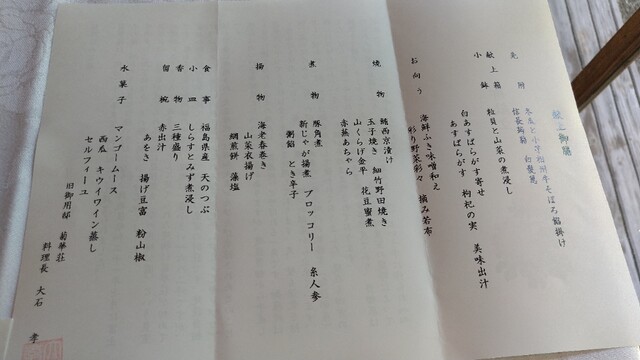 献上御膳
先附 冬瓜と小芋 相州牛そぼろ餡掛け
信長蒟蒻 白髪葱
献上箱 粒貝と山菜の煮浸し
小鉢 白あすぱらがす寄せ 枸杞の実 美味出汁
あすぱらがす
お向う 海鮮ふき味噌和え
彩り野菜彩々 摘み若布
焼物 鰆西京漬け
玉子焼き 細竹野田焼き
山くらげ金平 花豆蜜煮
赤蕪あちゃら
煮物 豚角煮
新じゃが揚煮 ブロッコリー 糸人参
粥餡 とき辛子
揚物 海老春巻き
山菜衣揚げ
鯛煎餅 藻塩
食事 福島県産 天のつぶ
小皿 しらすとみず煮浸し
香物 三種盛り
留椀 赤出汁
あをさ 揚げ豆富 粉山椒
水菓子 マンゴームース
西瓜 キウイワイン蒸し
セルフィーユ
旧御用邸 菊華荘
料理長 大石 孝